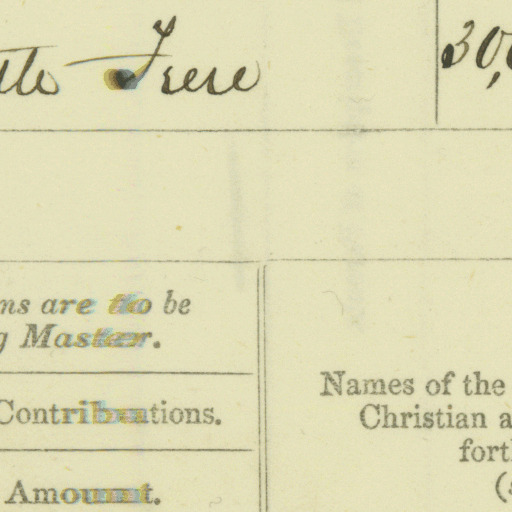 Frere
30,
ns are to be
g Master.
Contributions.
Amount.
Names of the
Christian a
fort
(